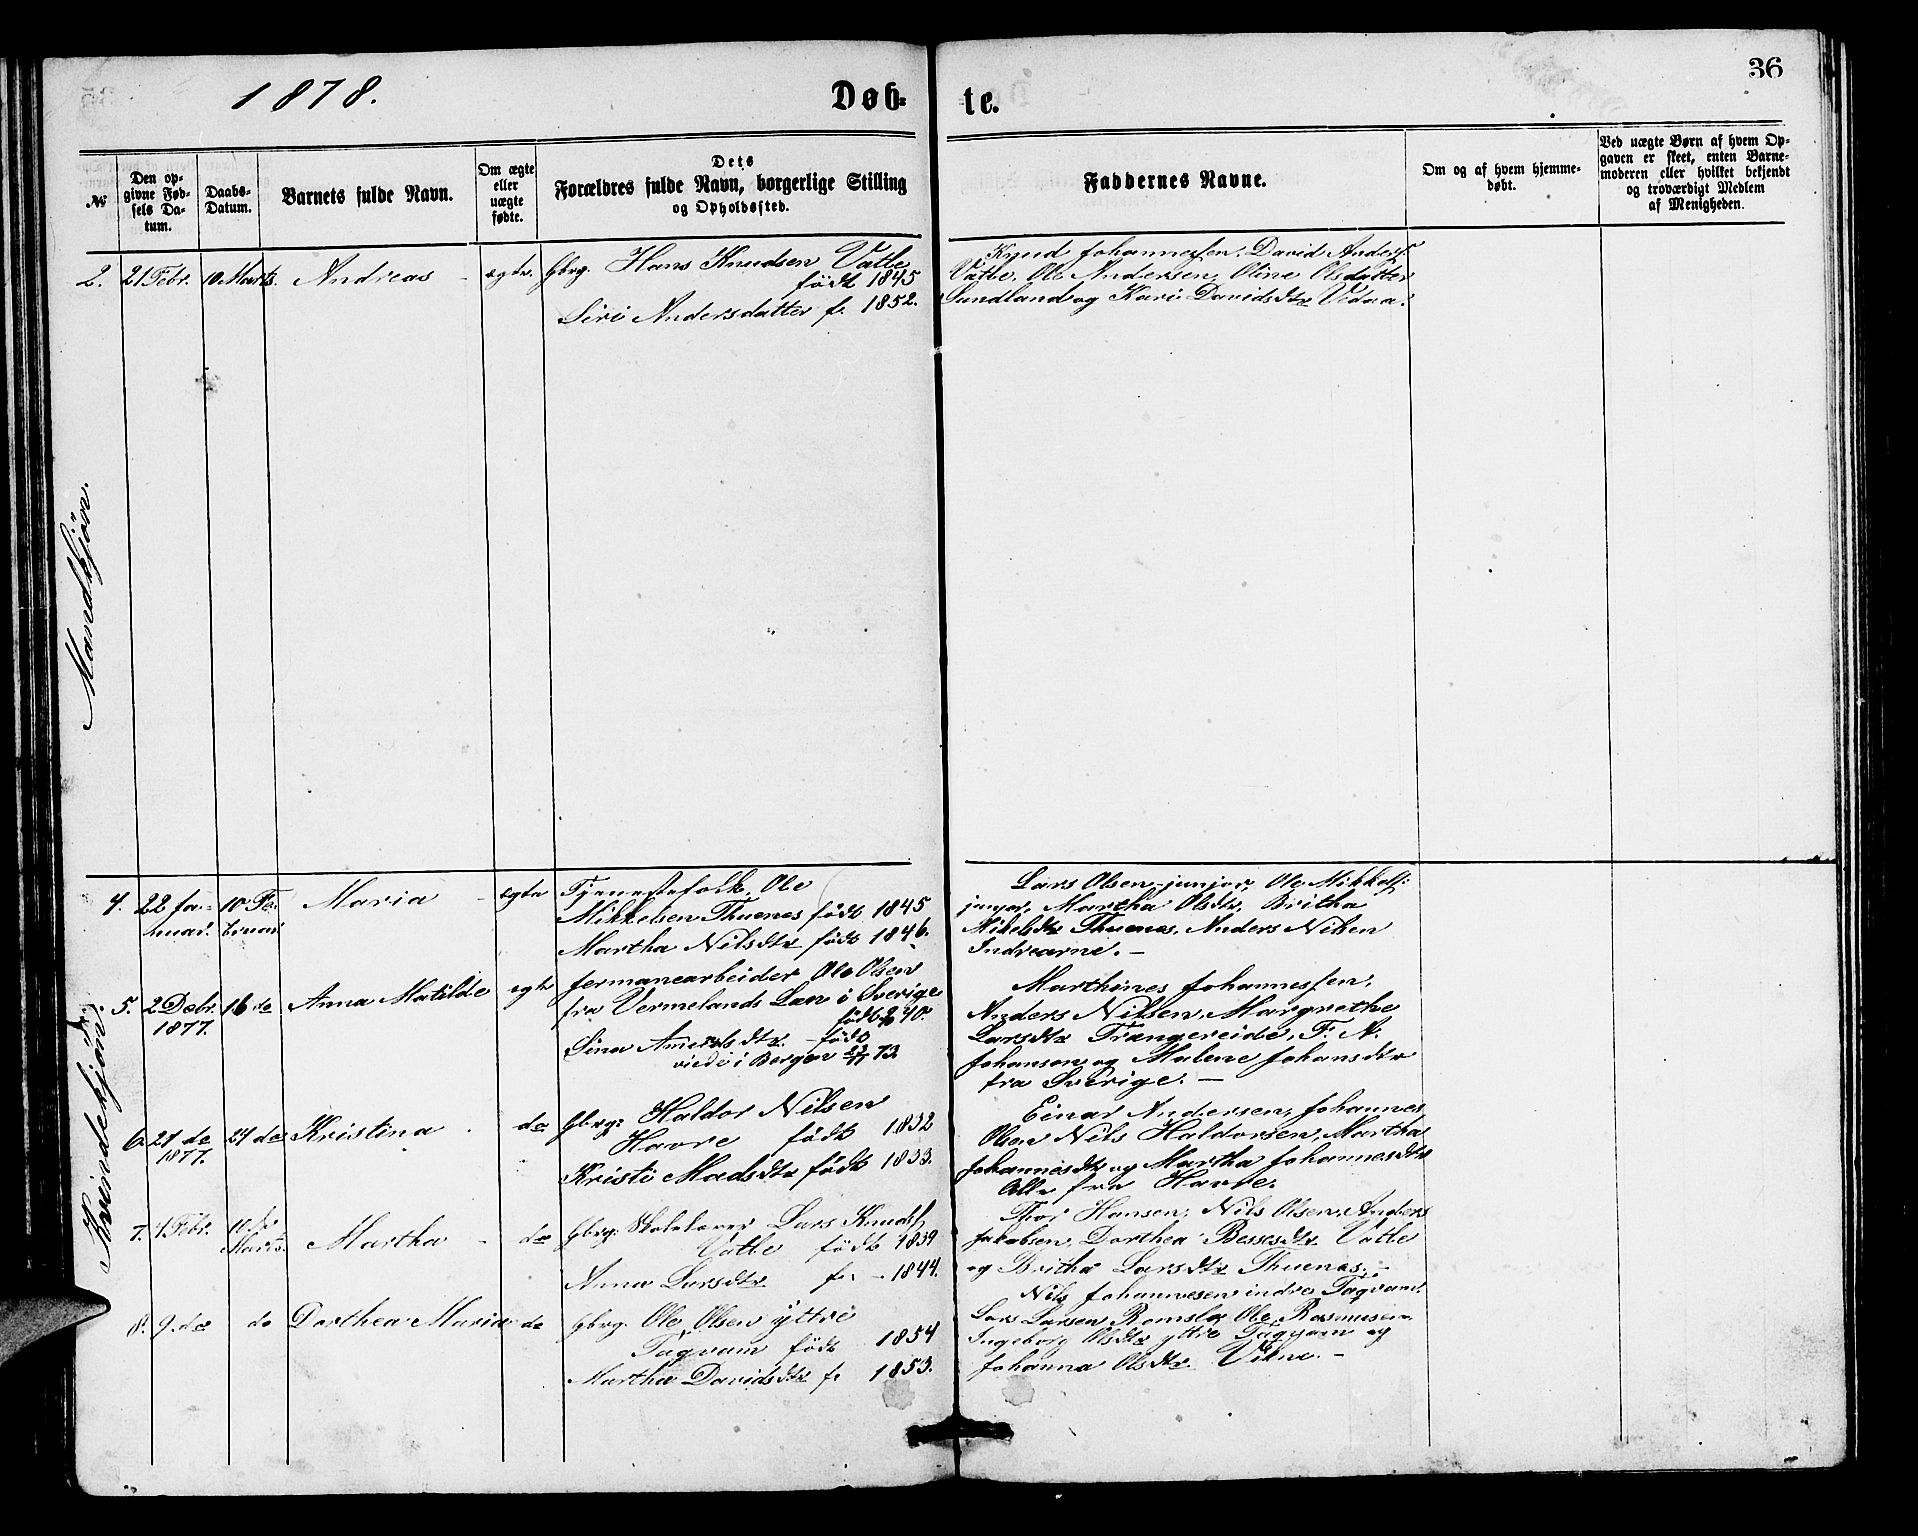 1878.
Døb-
te.
36
№
Den op-
givne Fød-
sels Da-
tum.
Daabs-
Datum.
Barnets fulde Navn.
Om ægte
eller
uægte
fødte.
Dets
Forældres fulde Navn, borgerlige Stilling
og Opholdssted.
Faddernes Navne.
Om og af hvem hjemme-
døbt.
Ved uægte Børn af hvem Op-
gaven er skeet, enten Barne-
moderen eller hvilket bekjendt
og troværdigt Medlem
af Menigheden.
Mandkjön.
2. 21 Febr. 10 Marts. Andreas - ægte. Gbrg. Hans Knudsen Vatle
födt 1845
Siri Andersdatter f. 1852.
Knud Johannessen, David Anders.
Vatle, Ole Andersen, Oline Olsdatter
Sundland og Kari Davidsdtr Vedaa.
Kvindekjön.
4. 22 Ja-
nuar. 10 Fe-
bruar Maria - ægte Tjenestefolk, Ole
Mikkelsen Thuenes födt 1845
Martha Nilsdtr födt 1846.
Lars Olsen junior, Ole Mikkels.
junior, Martha Olsdtr, Britha
Mikelsdtr Thuenes, Anders Nilsen
Indrearne. -
5. 2 Debr.
1877. 16 do Anna Matilde egte Jermanearbeider Ole Olsen
fra Vermelands Len i Sverige
födt 40.
Sina dtr. - födt
viede i Bergen 73.
Marthines Johannessen,
Anders Nilsen, Margrethe
Larsdtr Trangereide, F. A.
Johansen og Malene Johansdtr
fra Sverige. -
6. 21 de
1877. 24 do Kristina - do Gbrg: Haldor Nilsen
Havre födt 1832
Kristi Madsdtr födt 1833.
Einar Andersen, Johannes
Olsen Nils Haldorsen, Martha
Johannesdtr og Martha Johannesdtr
Alle fra Havre.
7. 4 Febr. 10 de
Marts. Martha - do Gbrg: Skolelærer Lars Knuds.
Vatle födt 1839
Anna Larsdtr f. - 1844.
Thor Hansen, Nils Olsen, Anders
Jakobsen, Dorthea Bessesdtr Vatle
og Britha Larsdtr Thuenes. -
8. 9. do do Dorthea Maria do Gbrg. Ole Olsen yttre
Tagvam födt 1854
Martha Davidsdtr f. 1853.
Nils Johannesen indre Tagvam,
Lars Larsen Romslo, Ole Rasmusen,
Ingeborg Olsdtr yttre Tagvam og
Johanna Olsdtr. Vikne. -